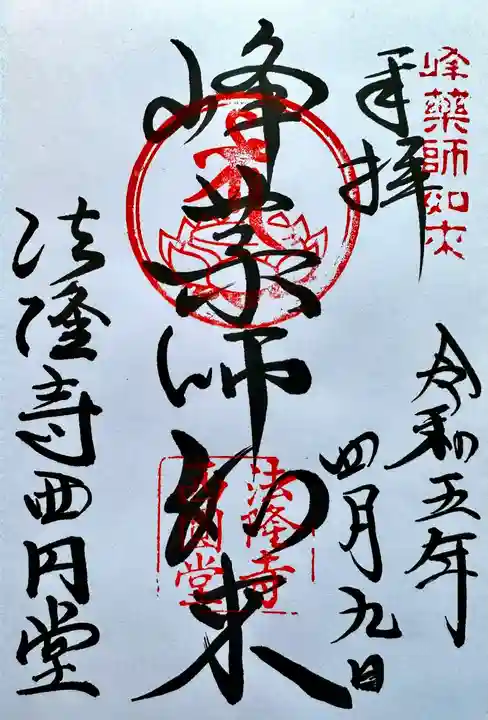 峰薬師如来
奉拝
令和五年
四月九日
峰薬師如来
法隆寺
西円堂
法隆寺西円堂